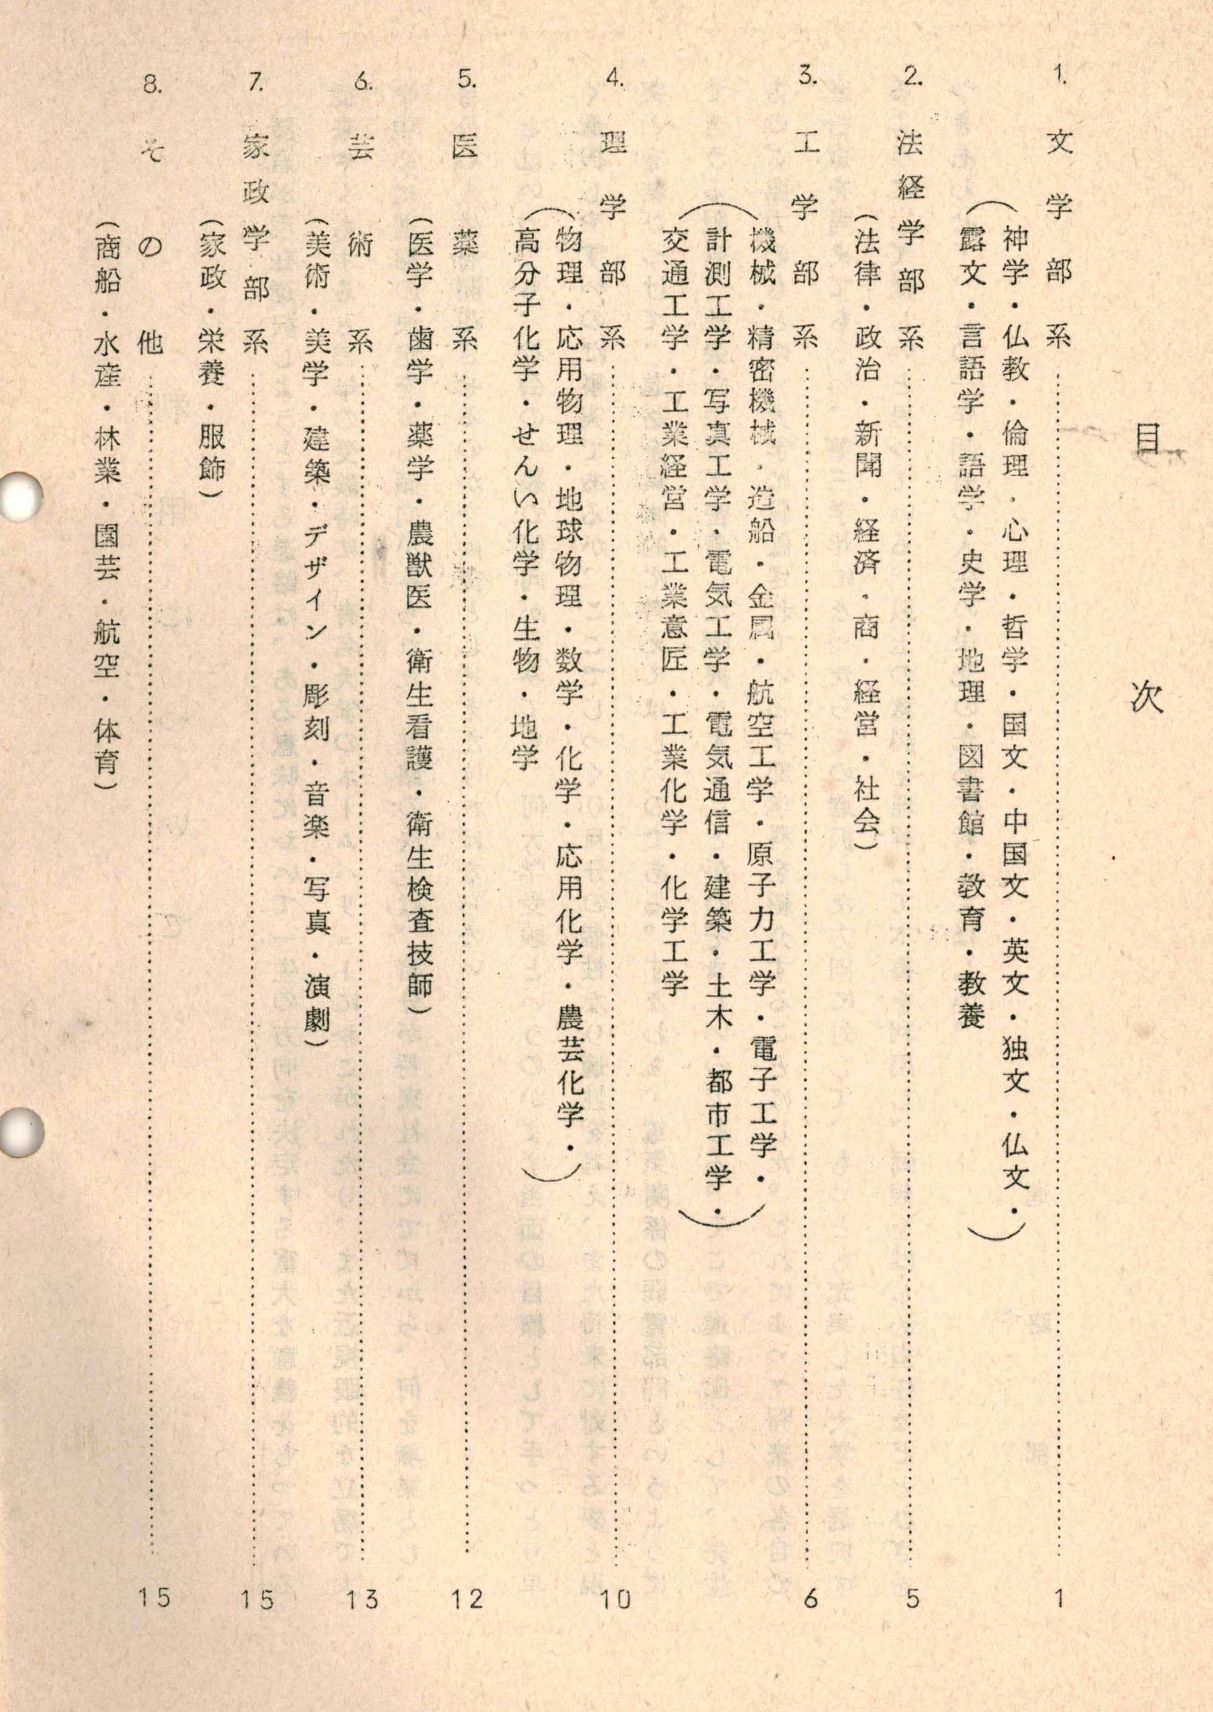 目次
1. 文学部系……………………1
（神学・仏教・倫理・心理・哲学・国文・中国文・英文・独文・仏文・
露文・言語学・語学・史学・地理・図書館・教育・教養）
2. 法経学部系……………………5
（法律・政治・新聞・経済・商・経営・社会）
3. 工学部系……………………6
（機械・精密機械・造船・金属・航空工学・原子力工学・電子工学・
計測工学・写真工学・電気工学・電気通信・建築・土木・都市工学・
交通工学・工業経営・工業意匠・工業化学・化学工学）
4. 理学部系……………………10
（物理・応用物理・地球物理・数学・化学・応用化学・農芸化学・
高分子化学・せんい化学・生物・地学）
5. 医薬系……………………12
（医学・歯学・薬学・農獣医・衛生看護・衛生検査技師）
6. 芸術系……………………13
（美術・美学・建築・デザイン・彫刻・音楽・写真・演劇）
7. 家政学部系……………………15
（家政・栄養・服飾）
8. その他……………………15
（商船・水産・林業・園芸・航空・体育）